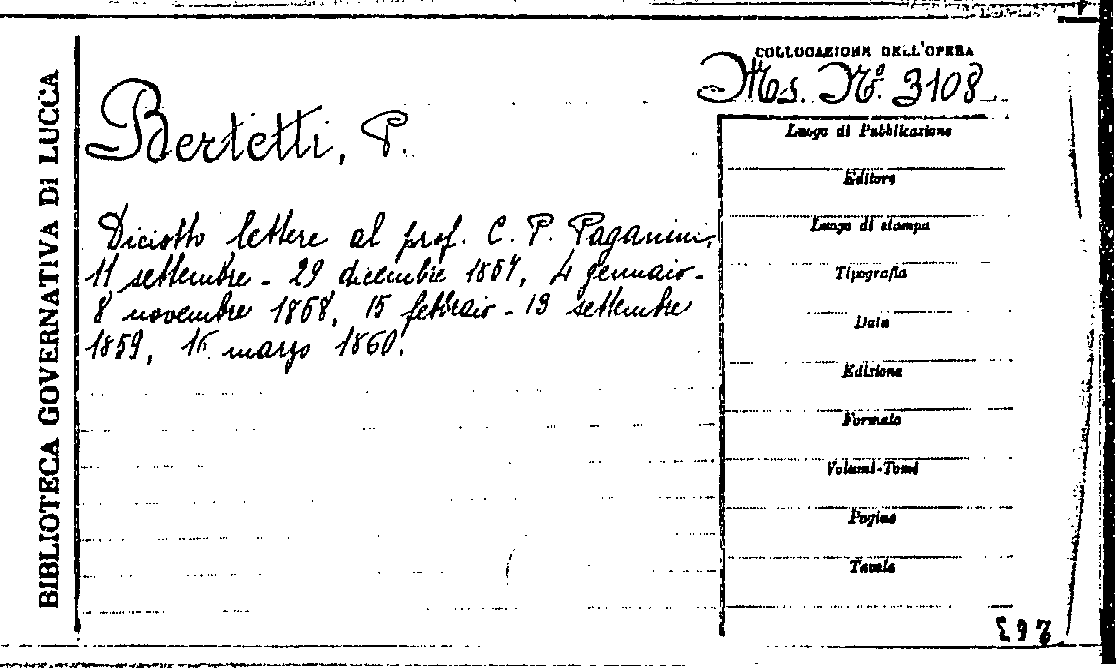 BIBLIOTECA GOVERNATIVA DI LUCCA
COLLOCAZIONE DELL'OPERA
Ms. Nº. 3108
Bertetti, P.
Diciotto lettere al prof. C. P. Paganini,
11 settembre - 29 dicembre 1857, 4 gennaio -
8 novembre 1858, 15 febbraio - 19 settembre
1859, 15 marzo 1860.
Luogo di Pubblicazione
Editore
Luogo di stampa
Tipografia
Data
Edizione
Formato
Volumi-Tomi
Pagine
Tavole